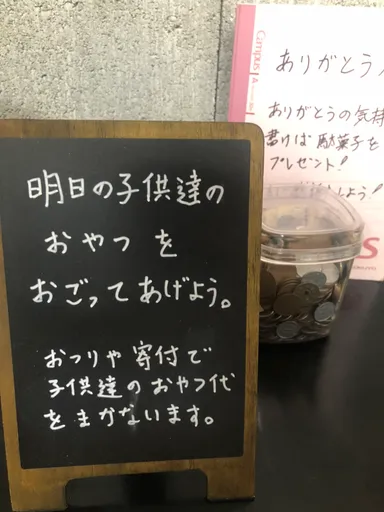 明日の子供達の
おやつを
おごってあげよう。
おつりや寄付で
子供達のおやつ代
をまかないます。
Campus
ありがとう
ありがとうの気持
書けば駄菓子を
プレゼント!
しよう!